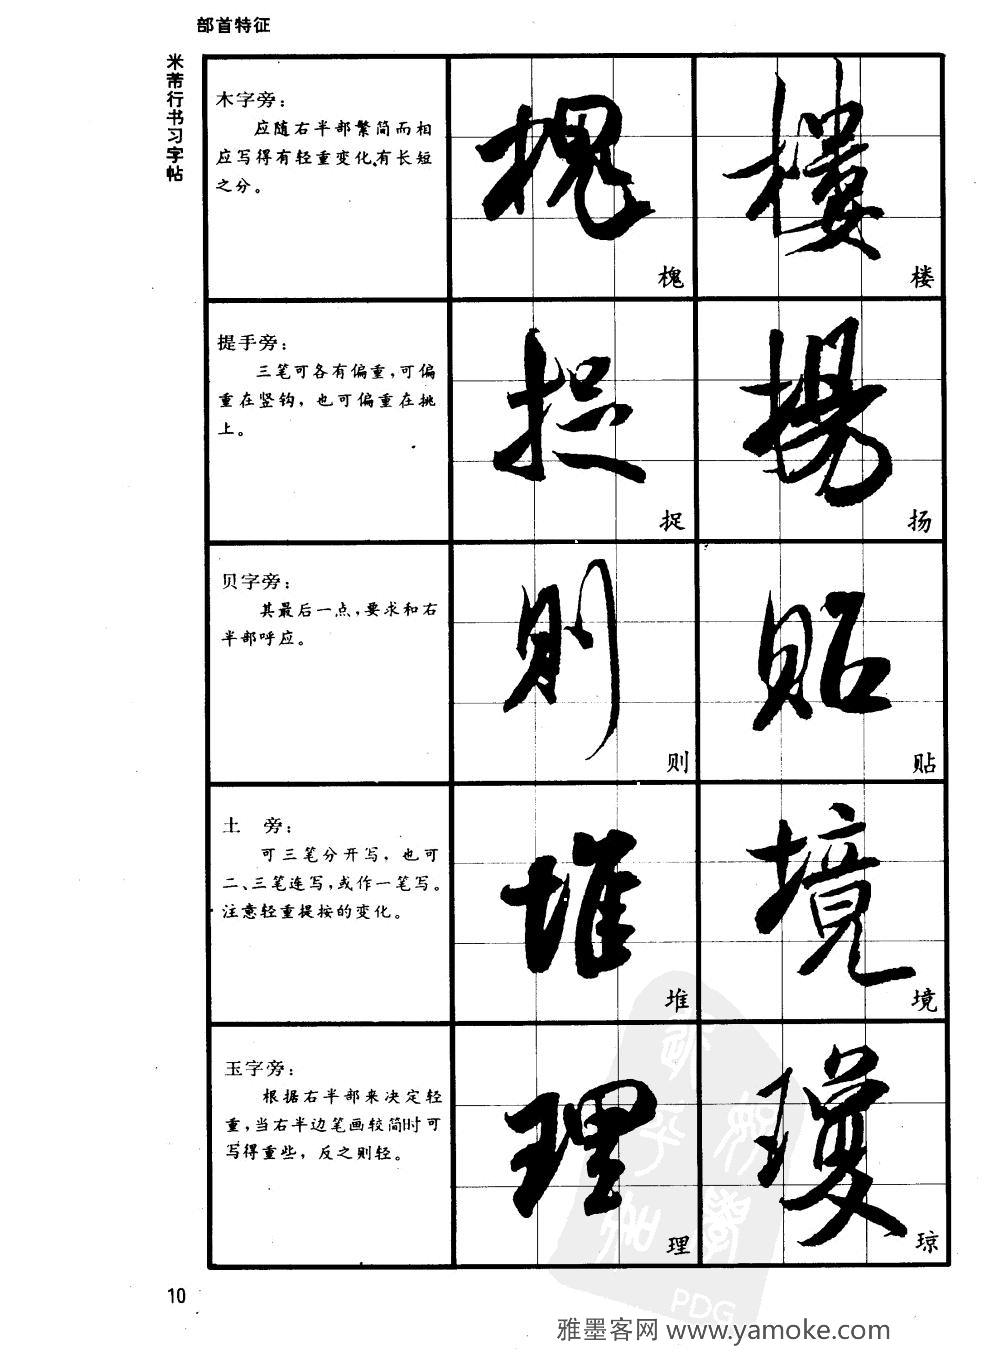 部首特征
米芾行书习字帖
木字旁：
应随右半部繁简而相
应写得有轻重变化、有长短
之分。
槐
楼
槐
楼
提手旁：
三笔可各有偏重，可偏
重在竖钩，也可偏重在挑
上。
捉
揚
捉
扬
贝字旁：
其最后一点，要求和右
半部呼应。
則
貼
则
贴
土　旁：
可三笔分开写，也可
二、三笔连写，或作一笔写。
注意轻重提按的变化。
堆
境
堆
境
玉字旁：
根据右半部来决定轻
重，当右半边笔画较简时可
写得重些，反之则轻。
理
瓊
理
琼
PDG
10
雅墨客网 www.yamoke.com